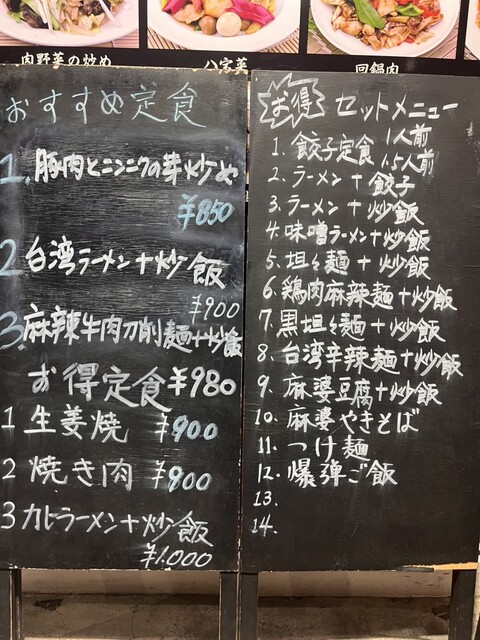 肉野菜の炒め
八宝菜
回鍋肉
おすすめ定食
1. 豚肉とニンニクの芽炒め
¥850
2 台湾ラーメン+炒飯
¥900
3. 麻辣牛肉刀削麺+炒飯
¥980
お得定食
1 生姜焼 ¥900
2 焼き肉 ¥900
3 カルビラーメン+炒飯
¥1,000
お得 セットメニュー
1. 餃子定食 1人前
1.5人前
2. ラーメン+餃子
3. ラーメン+炒飯
4. 味噌ラーメン+炒飯
5. 坦々麺+炒飯
6. 鶏肉麻辣麺+炒飯
7. 黒坦々麺+炒飯
8. 台湾辛辣麺+炒飯
9. 麻婆豆腐+炒飯
10. 麻婆やきそば
11. つけ麺
12. 爆弾ご飯
13.
14.